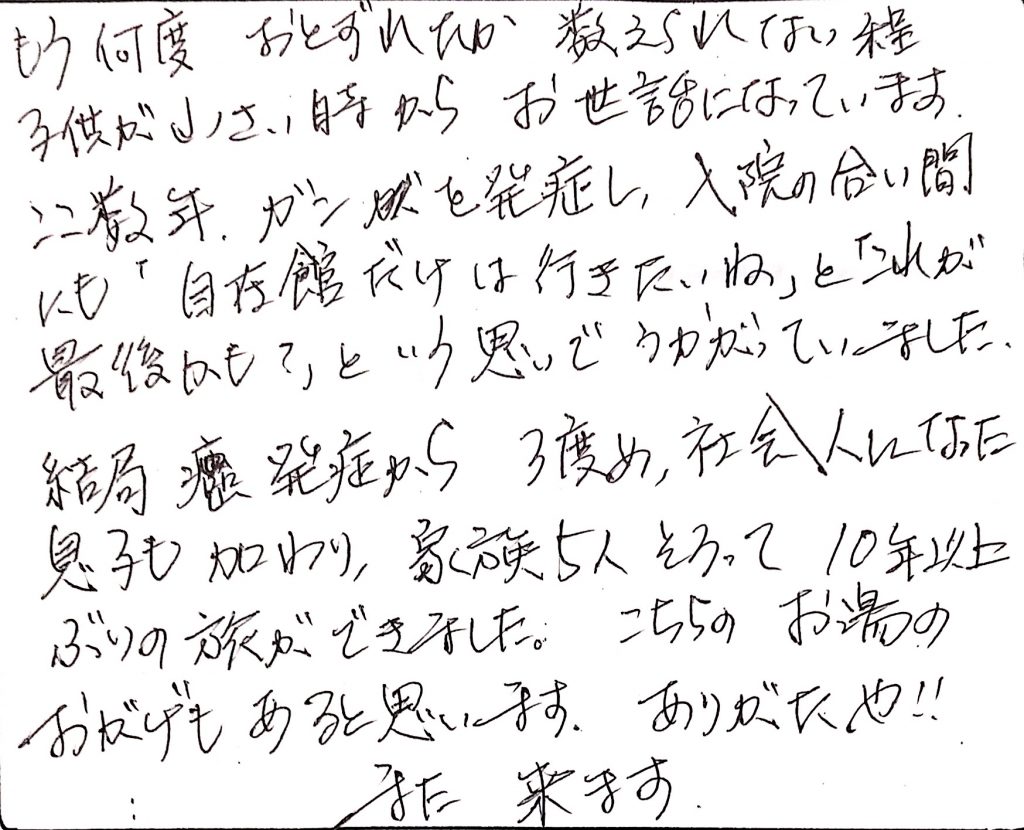 もう何度 おとずれたか 数えられない程
子供が小さい時から お世話になっています.
ここ数年. ガンを発症し, 入院の合い間
にも「自在館だけは行きたいね」と「これが
最後かも?」という思いでうかがっていました.
結局 癌 発症から 3度め, 社会人になった
息子も 加わり, 家族5人 そろって 10年以上
ぶりの 旅ができました。 こちらの お湯の
おかげも あると思います. ありがたや!!
また 来ます.